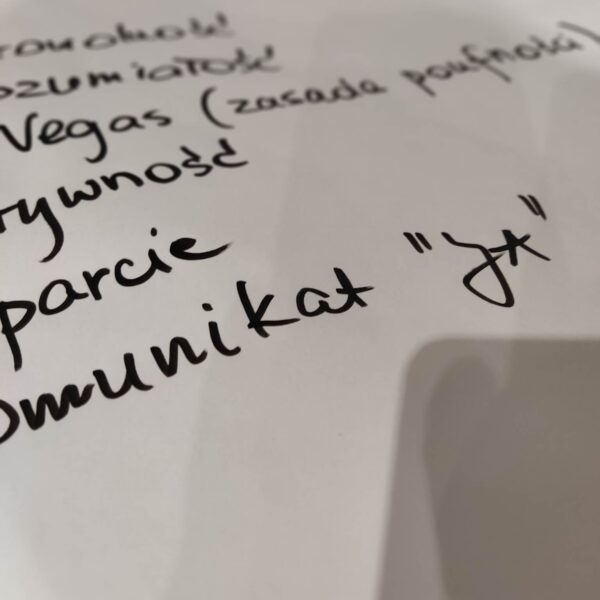 ozumiałość
Vegas (zasada poufności)
tywność
parcie
omunikat "Ja"